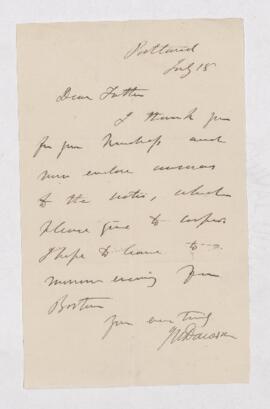 Portland
July 18
Dear Father
I thank you
for your and
now enclose
to the notes, which
please give to
I hope to leave to-
morrow evening for
Boston
your ever truly
JWDawson